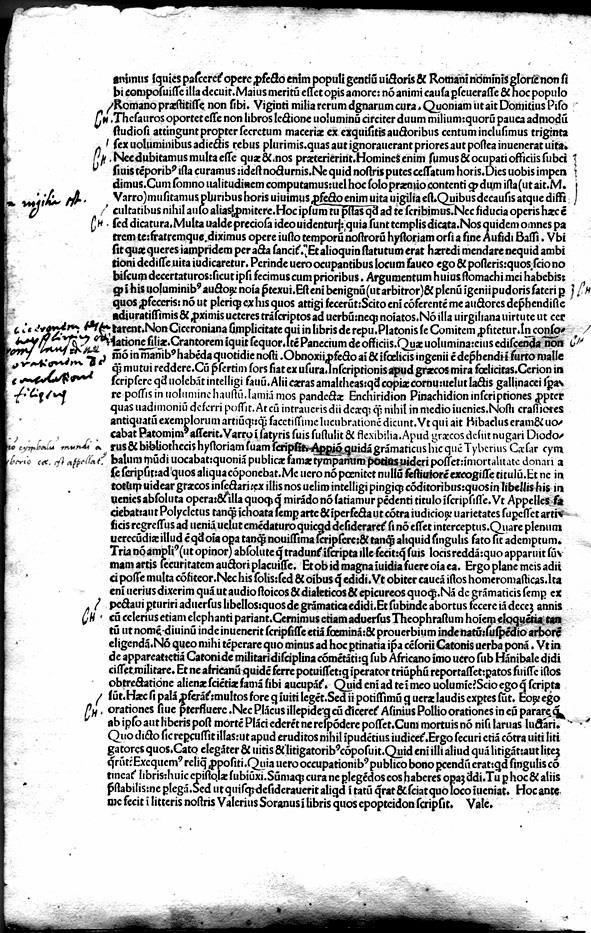 animus iquies pasceret opere ꝓfecto enim populi gentiū uictoris & Romani nominis gloriæ non si
bi composuisse illa decuit. Maius meritū esset opis amore: nō animi causa ꝑseuerasse & hoc populo
Romano præstitisse non sibi. Viginti milia rerum dgnarum cura. Quoniam ut ait Domitius Piso
Thesauros oportet esse non libros lectione uoluminū circiter duum milium: quorū pauca admodū
studiosi attingunt propter secretum materiæ ex exquisitis auctoribus centum inclusimus triginta
sex uoluminibus adiectis rebus plurimis. quas aut ignorauerant priores aut postea inuenerat uita.
Nec dubitamus multa esse quæ & nos præterierint. Homines enim sumus & ocupati officiis subci
siuis tēporibꝰ ista curamus: idest nocturnis. Ne quid nostris putes cessatum horis. Dies uobis impen
dimus. Cum somno ualitudinem computamus: uel hoc solo præmio contenti ꝙ dum ista (ut ait. M.
Varro) musitamus pluribus horis uiuimus ꝓfecto enim uita uigilia est. Quibus decausis atque diffi
cultatibus nihil auso alias ꝑmitere. Hoc ipsum tu p̄stas qd ad te scribimus. Nec fiducia operis hæc ē
sed dicatura. Multa ualde preciosa ideo uidentur: quia sunt templis dicata. Nos quidem omnes pa
trem te: fratremque. diximus opere iusto temporū nostrorū hystoriam orsi a fine Aufidi Bassi. Vbi
sit quæ queres iampridem per acta sancitꝰ. Et alioquin statutum erat hæredi mandare nequid ambi
tioni dedisse uita iudicaretur. Perinde uero ocupantibus locum fauco ego & posteris: quos scio no
biscum decertaturos: sicut ipsi fecimus cum prioribus. Argumentum huius stomachi mei habebis:
ꝙ i his uoluminibꝰ auctoꝝ noīa p̄texui. Est eni benignū (ut arbitror) & plenū igenii pudoris fateri p
quos ꝓfeceris: nō ut pleriꝗ ex his quos attigi fecerūt: Scito eni cōferentē me auctores dep̄hendisse
adiuratissimis & ꝓximis ueteres trāscriptos ad uerbū: neꝗ noīatos. Nō illa uirgiliana uirtute ut cer
tarent. Non Ciceroniana simplicitate qui in libris de repu. Platonis se Comitem ꝓfitetur. In conso
latione filiæ. Crantorem īquit sequor. Itē Panecium de officiis. Quæ uolumina: eius ediscenda non
mō in manibꝰ habēda quotidie nosti. Obnoxii ꝓfecto aī & ifœlicis ingenii ē dep̄hendi ī furto malle
ꝗ̄ mutui reddere. Cū p̄sertim fors fiat ex usura. Inscriptionis apud græcos mira fœlicitas. Cerion in
scripsere qd uolebāt intelligi fauū. Alii cæras amaltheas: qd copiæ cornu: uelut lactis gallinacei spa
re possis in uolumine haustū. Iam iā mos pandectæ Enchiridion Pinachidion inscriptiones ꝓpter
quas uadimoniū deferri possit. At cū intraueris dii deæꝗ ꝗ̄ nihil in medio iuenies. Nostri crassiores
antiquatū exemplorum artiūꝗ: facetissime lucubratione dicunt. Vt qui ait Bibaclus eram & uo
cabat Patomimꝰ asserit. Varro ī satyris suis sustulit & flexibilia. Apud græcos desiit nugari Diodo-
rus & bibliothecis hystoriam suam scripsit. Appiō quidā grāmaticus hic quē Tyberius Cæsar cym
balum mūdi uocabat: quoniā publicæ famæ tympanum potius uideri posset: imortalitate donari a
se scripsit: ad quos aliqua cōponebat. Me uero nō pœnitet nullū festiuiorē excogisse titulū. Et ne in
totum uidear græcos insectari: ex illis nos uelim intelligi pingiꝗ cōditoribus: quos in libellis his in
uenies absoluta opera: & illa quoꝗ ꝗ mirādo nō satiamur pēdenti titulo iscripsisse. Vt Appelles fa
ciebat aut Polycletus tanꝗ̄ ichoata semp arte & īperfecta ut cōtra iudicioꝝ uarietates supesset artiv
ficis regressus ad ueniā uelut emēdaturo quicꝗd desideraret si nō esset interceptus. Quare plenum
uerecūdiæ illud ē qd oīa opa tanꝗ̄ nouissima scripsere: & tanꝗ̄ aliquid singulis fato sit ademptum.
Tria nō ampliꝰ (ut opinor) absolute ꝗ tradunt iscripta ille fecit: ꝗ suis locis reddā: quo apparuit sūv
mam artis securitatem auctori placuisse. Et ob id magna īuidia fuere oīa ea. Ergo plane meis adii
ci posse multa cōfiteor. Nec his solis: sed & oībus ꝗ edidi. Vt obiter caueā istos homeromasticas. Ita
eni uerius dixerim quā ut audio stoicos & dialeticos & epicureos quoꝗ. Nā de grāmaticis semp ex
pectaui ꝑturiri aduersus libellos: quos de grāmatica edidi. Et subinde abortus fecere iā decez annis
cū celerius etiam elephanti pariant. Cernimus etiam aduersus Theophrastum hoīem eloquētia tan
tū ut nomē diuinū inde inuenerit scripsisse etiā fœminā: & prouerbium inde natū: suspēdio arborē
eligendā. Nō queo mihi tēperare quo minus ad hoc ptinatia ipa cēsorii Catonis uerba ponā. Vt in
de appareat: etiā Catoni de militari disciplina cōmētāti: ꝗ sub Africano imo uero sub Hānibale didi
cisset militare. Et ne africanū quidē ferre potuisset: ꝗ iperator triūphū reportasset: patos fuisse istos
obtrectatione alienæ sciētiæ famā sibi aucupāt. Quid eni ad te ī meo uolumīe: Scio ego ꝗ scripta
sūt. Hæc si palā ꝓferāt: multos fore ꝗ iuiti legēt. Sed ii potissimū ꝗ ueræ laudis exptes sūt. Eoꝝ ego
orationes siue p̄terfluere. Nec Plācus illepide ꝗ cū diceret Asinius Pollio orationes in eū parare ꝗ̄
ab ipso aut liberis post mortē Plāci ederēt ne respōdere posset. Cum mortuis nō nisi laruas luctari.
Quo dicto sic repcussit illas: ut apud eruditos nihil īpudētius iudicēt. Ergo securi etiā cōtra uiti liti
gatores quos. Cato elegāter & uitis & litigatoribꝰ cōposuit. Quid eni illi aliud quā litigāt: aut litez
ꝗ̄rūt: Exequemꝰ reliꝗ ꝓpositi. Quia uero occupationibꝰ publico bono pcendū erat: qd singulis cō
tineat libris: huic epistolæ subiūxi. Sūmaꝗ cura ne plegēdos eos haberes opaz ddi. Tu p hoc & aliis
p̄stabilis: ne plegā. Sed ut quisꝗ desiderauerit aliqd ī tatū ꝗ̄rat & sciat quo loco iueniat. Hoc ante
me fecit ī litteris nostris Valerius Soranus ī libris quos epopteidon scripsit. Vale.